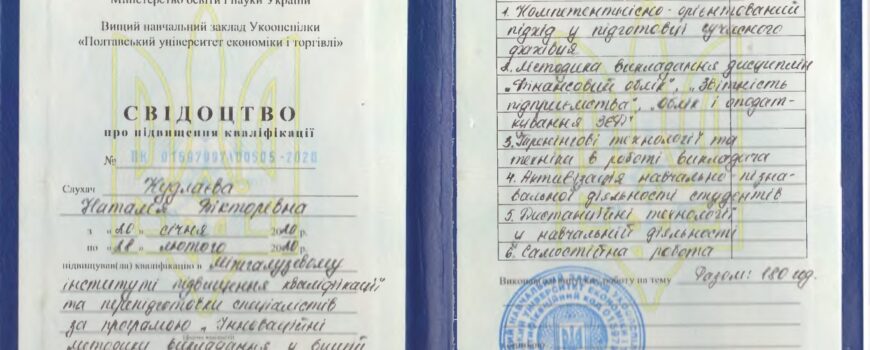 Міністерство освіти і науки України
Вищий навчальний заклад Укоопспілки
«Полтавський університет економіки і торгівлі»
СВІДОЦТВО
про підвищення кваліфікації
№ ПК 01597997/00505-2020
Слухач
Наталія Вікторівна
з «20» січня 2020 р.
по «28» лютого 2020 р.
підвищував(ла) кваліфікацію в Міжгалузевому
інституті підвищення кваліфікації
та перепідготовки спеціалістів
за програмою „Інноваційні
методики викладання у вищій
1. Компетентнісно-орієнтований
підхід у підготовці сучасного
фахівця
2. Методика викладання дисциплін
„Фінансовий облік", „Звітність
підприємства", „Облік і оподат-
кування ЗЕД"
3. Тренінгові технології та
техніка в роботі викладача
4. Активізація навчально пізна-
вальної діяльності студентів
5. Дистанційні технології
у навчальній діяльності
6. Самостійна робота
роботу на тему Разом: 180 год.